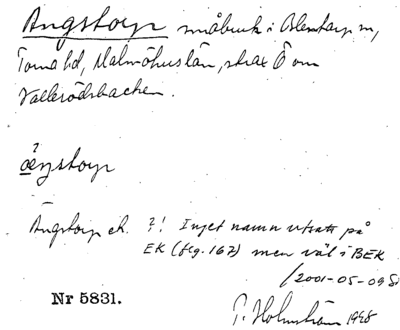 Ängstorp småbruk i Blentarp sn,
Torna hd, Malmöhus län, strax Ö om
Vallerödsbacken.
?
æŋstorp
Ängstorp ek. ?! Inget namn utsatt på
EK (flg. 167) men väl i BEK
/2001-05-09
Nr 5831.
Holmström 1948